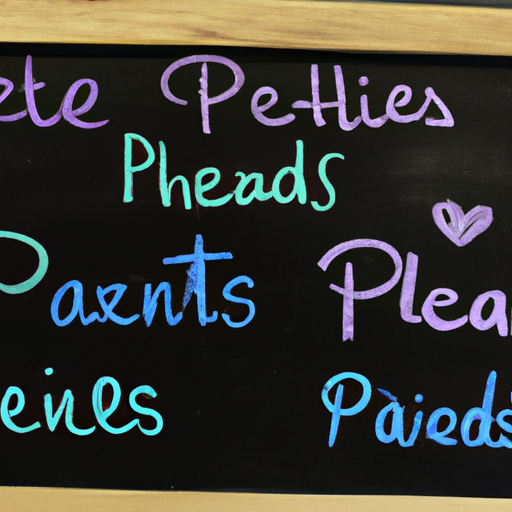 ete Pethies
Pheads
Paxents Plea
enes Paieds